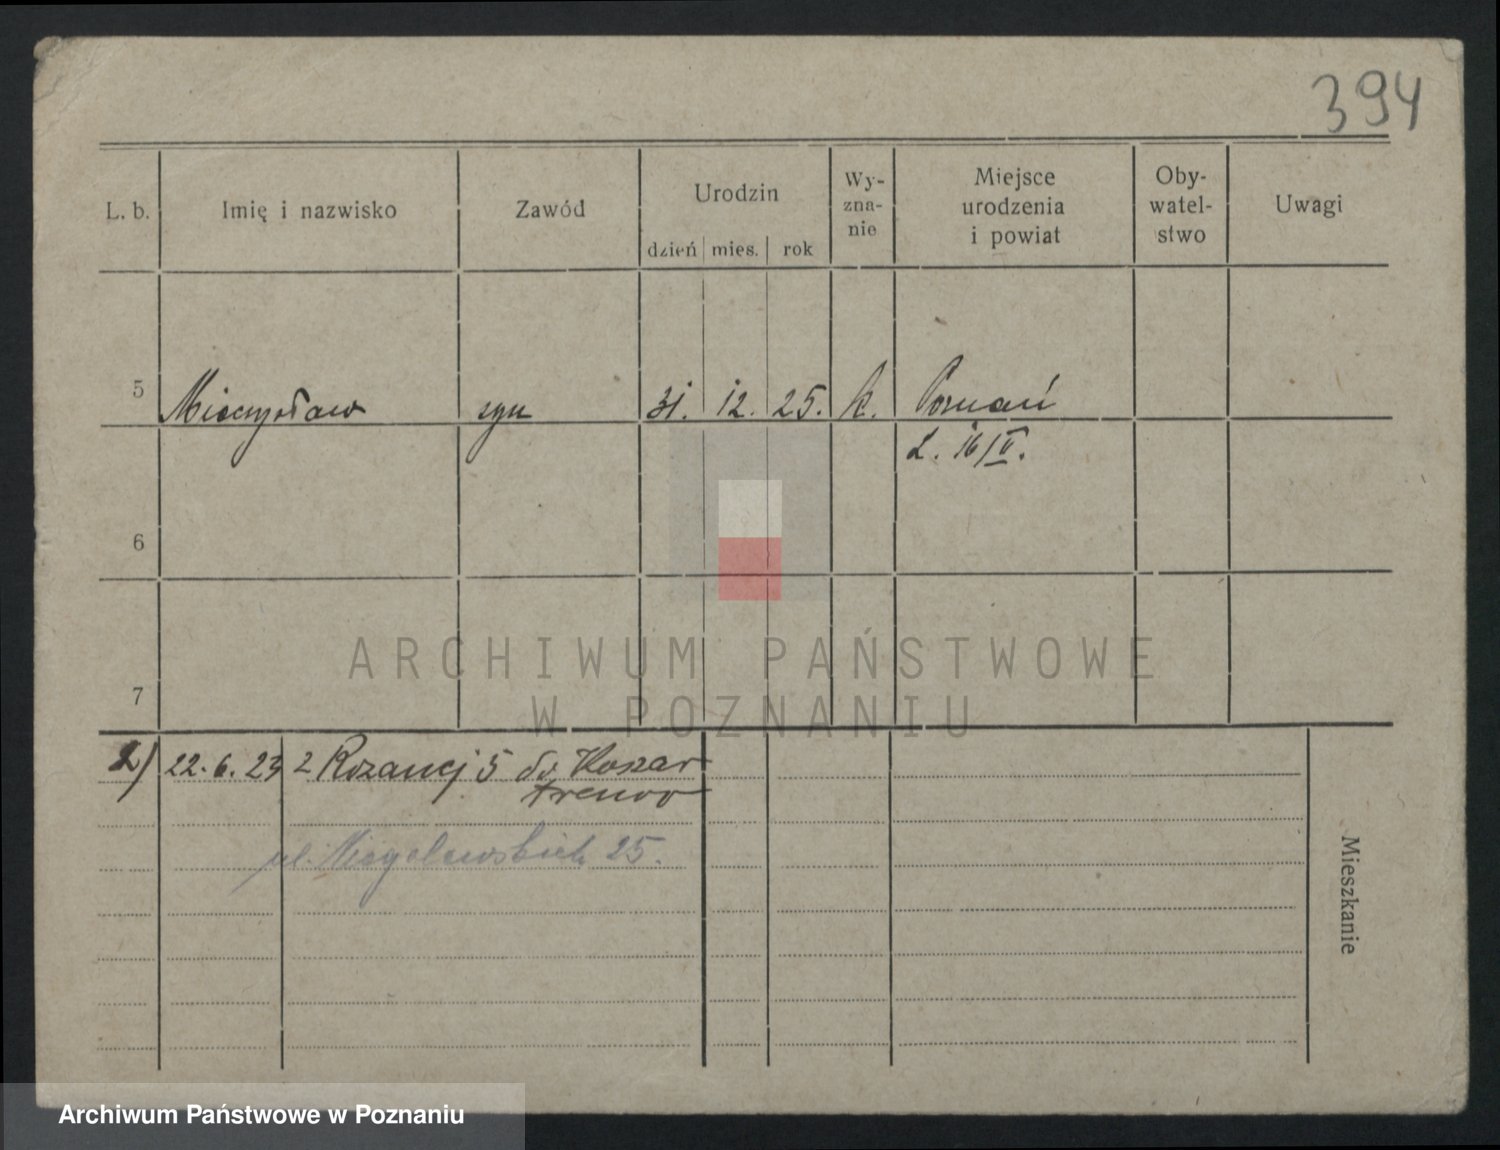 394
L. b. Imię i nazwisko Zawód Urodzin dzień mies. rok Wy-zna-nie Miejsce urodzenia i powiat Oby-watel-stwo Uwagi
5 Mieczysław syn 31. 12. 25. k. Poznań
L. 16/II.
6
ARCHIWUM PAŃSTWOWE
W POZNANIU
7
2) 22. 6. 23 z Rozanej 5 do Koszar
treno
ul. Niegolewskich 25.
Mieszkanie
Archiwum Państwowe w Poznaniu